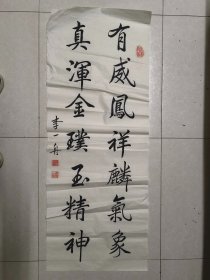 有威鳳祥麟氣象
真渾金璞玉精神
李一舟